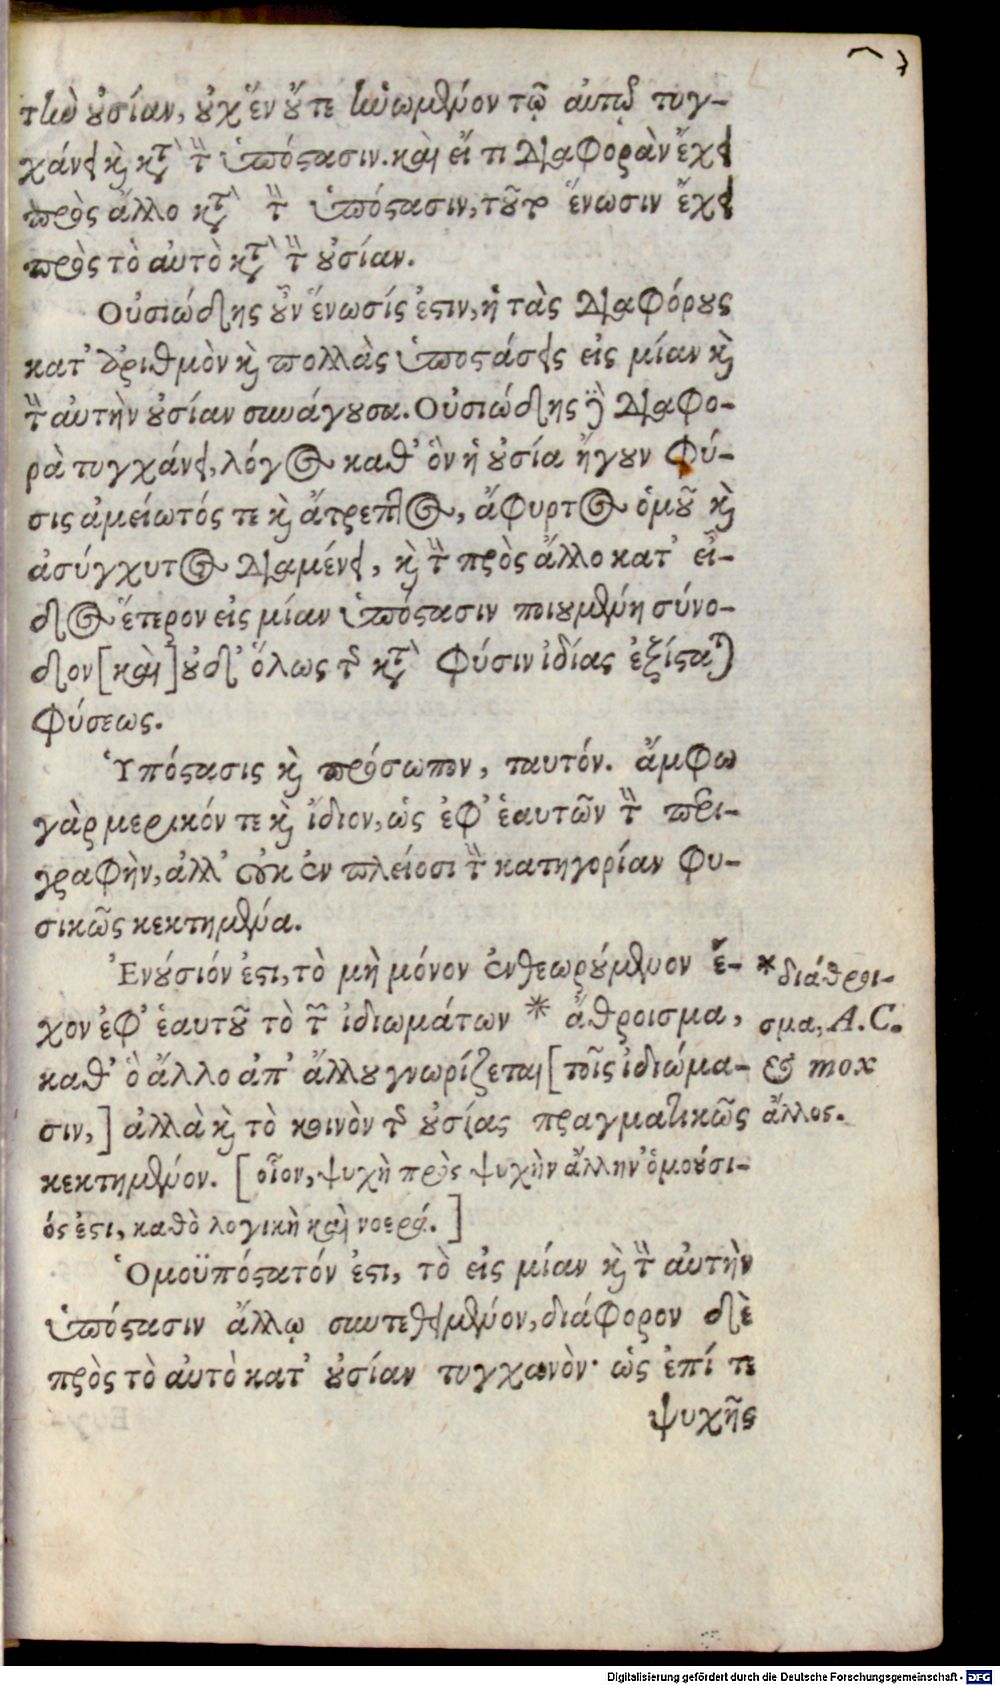 τὴν οὐσίαν, οὐχ ἕν οὔτε ἡνωμένον τῷ αὐτῷ τυγ-
χάνει καὶ κατὰ τὴν ὑπόστασιν. καὶ εἴ τι διαφορὰν ἔχει
πρὸς ἄλλο κατὰ τὴν ὑπόστασιν, τοῦτο ἕνωσιν ἔχει
πρὸς τὸ αὐτὸ κατὰ τὴν οὐσίαν.
Οὐσιώδης οὖν ἕνωσίς ἐστιν, ἡ τὰς διαφόρους
κατ' ἀριθμὸν καὶ πολλὰς ὑποστάσεις εἰς μίαν καὶ
τὴν αὐτὴν οὐσίαν συνάγουσα. Οὐσιώδης δὲ διαφο-
ρὰ τυγχάνει, λόγος καθ' ὃν ἡ οὐσία ἤγουν φύ-
σις ἀμείωτός τε καὶ ἄτρεπτος, ἄφυρτος ὁμοῦ καὶ
ἀσύγχυτος διαμένει, καὶ τὴν πρὸς ἄλλο κατ' εἶ-
δος ἕτερον εἰς μίαν ὑπόστασιν ποιουμένη σύνο-
δον [καὶ] οὐδ' ὅλως τῆς κατὰ φύσιν ἰδίας ἐξίσταται
φύσεως.
Ὑπόστασις καὶ πρόσωπον, ταυτόν. ἄμφω
γὰρ μερικόν τε καὶ ἴδιον, ὡς ἐφ' ἑαυτῶν τὴν περι-
γραφὴν, ἀλλ' οὐκ ἐν πλείοσι τὴν κατηγορίαν φυ-
σικῶς κεκτημένα.
Ἐνούσιόν ἐστι, τὸ μὴ μόνον ἐνθεωρούμενον ἔ-
χον ἐφ' ἑαυτοῦ τὸ τῶν ἰδιωμάτων * ἄθροισμα,
καθ' ὃ ἄλλο ἀπ' ἄλλου γνωρίζεται [τοῖς ἰδιώμα-
σιν,] ἀλλὰ καὶ τὸ κοινὸν τῆς οὐσίας πραγματικῶς
κεκτημένον. [οἷον, ψυχὴ πρὸς ψυχὴν ἄλλην ὁμούσι-
ός ἐστι, καθὸ λογικὴ καὶ νοερά.]
Ὁμοϋπόστατόν ἐστι, τὸ εἰς μίαν καὶ τὴν αὐτὴν
ὑπόστασιν ἄλλῳ συντεθειμένον, διάφορον δὲ
πρὸς τὸ αὐτὸ κατ' οὐσίαν τυγχανὸν· ὡς ἐπί τε
ψυχῆς
* διάθροι-
σμα, A. C.
& mox
ἄλλος.
Digitalisierung gefördert durch die Deutsche Forschungsgemeinschaft - DFG